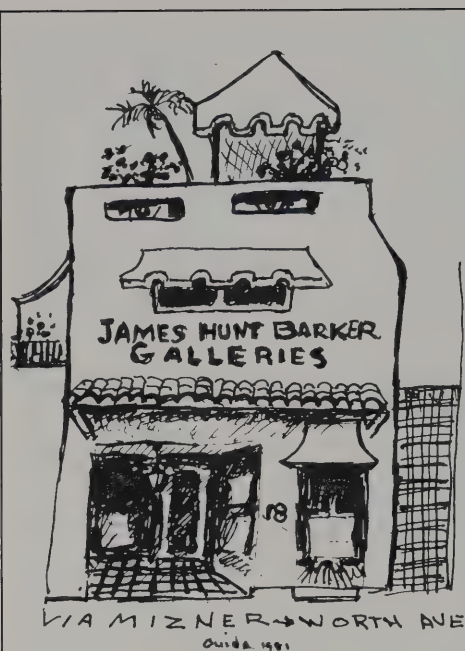 JAMES HUNT BARKER
GALLERIES
18
VIA MIZNER → WORTH AVE
Guida 1981